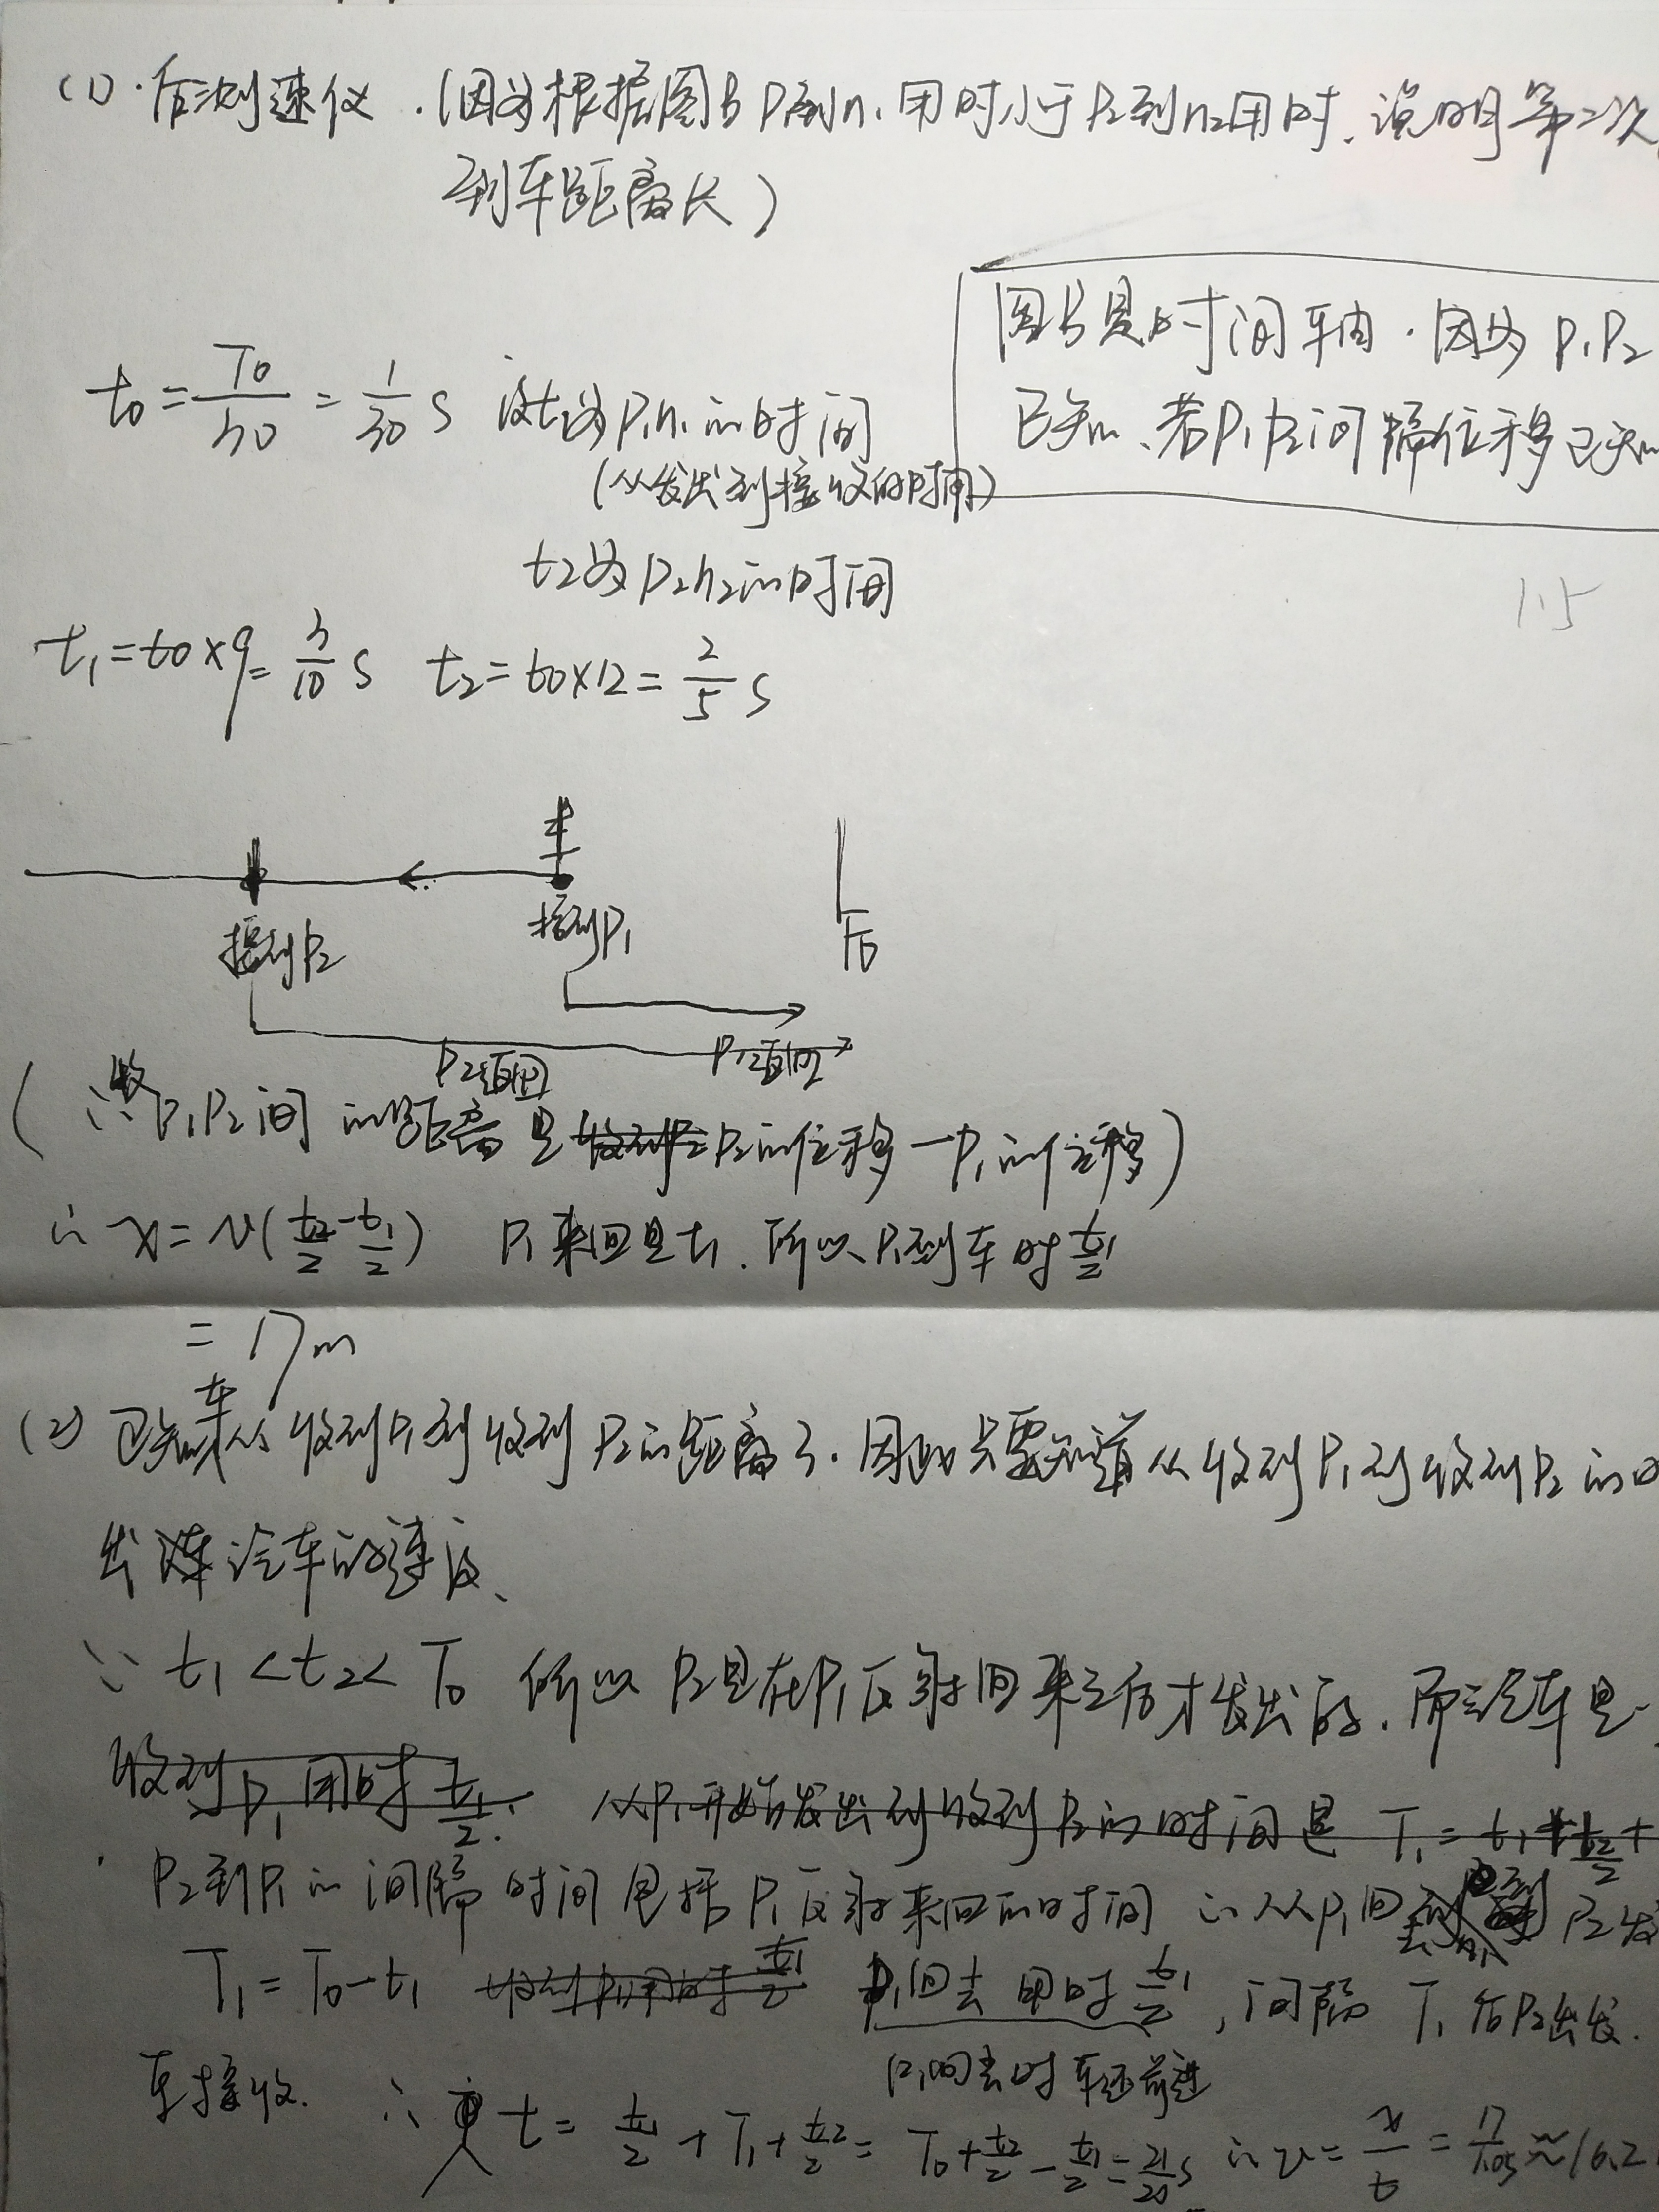 (1).后测速仪.(因为根据图B P1到n1用时小于P2到n2用时.说明第二次
到车距离长)
图B是时间轴.因为P1P2
已知、若P1P2间隔位移已知
t0=T0/30=1/30 s 设t1为P1n1的时间
(从发出到接收的时间)
t2为P2n2的时间
1.5
t1=t0×9=3/10 s t2=t0×12=2/5 s
车
接到P2 接到P1
P2返回 P1返回
(∴P1P2间的距离是P2的位移-P1的位移)
∴x=v(t2/2-t1/2) P1来回是t1.所以P1到车时t1/2
=17m
(2) 已知车从收到P1到收到P2的距离了.因此只要知道从收到P1到收到P2的
出汽车的速度、
∵t1<t2<T0 所以P2是在P1反射回来之后才发出的.而汽车是
收到P1用时t1/2. 从P1开始发出到收到P2的时间是T1=t1+t2/2+
P2到P1的间隔时间包括P1反射来回的时间 ∴从P1回到P2发
T1=T0-t1 收到P1用时t1/2 P1回去用时t1/2,间隔T1后P2出发.
P1回去时车还前进
车接收. ∴t=t1/2+T1+t2/2=T0+t2/2-t1/2=21/20 s ∴v=x/t=17/1.05≈16.2